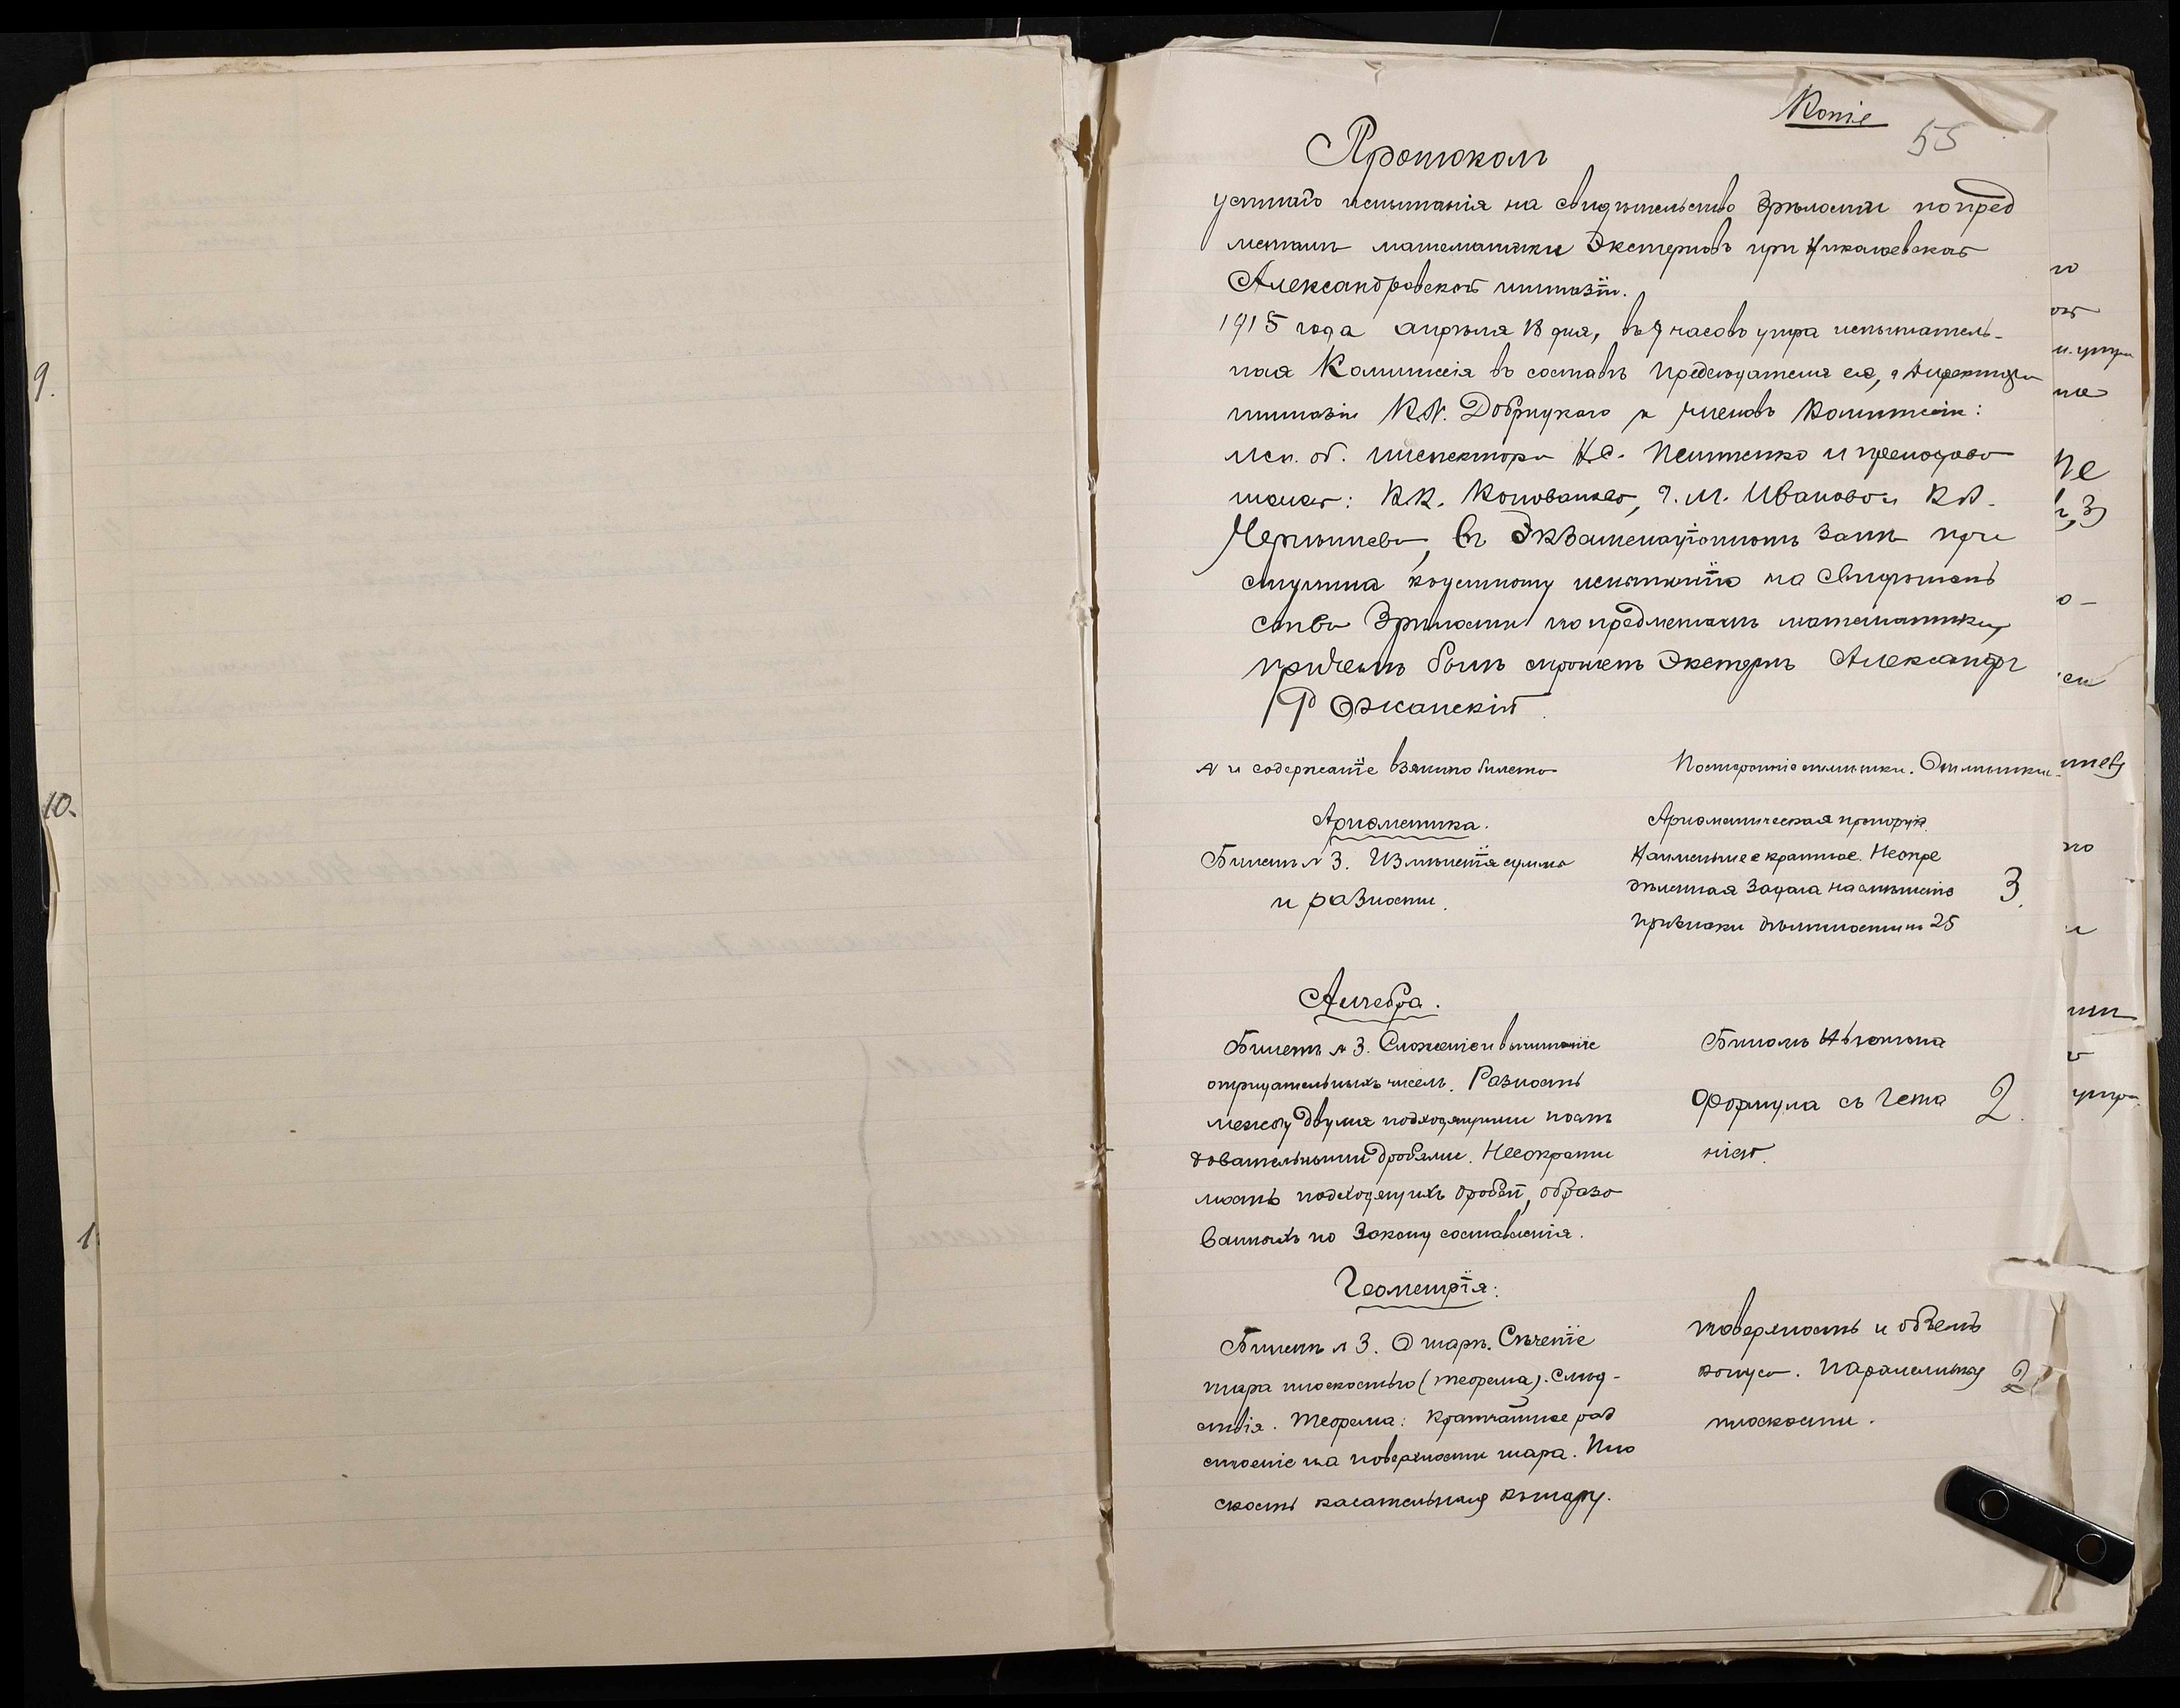 9.
10.
1
Копіе
55
Протоколъ
устнаго испытанія на свидѣтельство зрѣлости по пред
метамъ математики Экстерновъ при Николаевской
Александровской гимназіи.
1915 года апрѣля 18 дня, въ 9 часовъ утра испытатель-
ная Коммиссія въ составѣ Предсѣдателя ея, Директора
гимназіи К.N. Добрицкаго и членовъ Коммиссіи:
исп. об. инспектора Н.С. и преподава
телей: К.К. Г.М. Иванова и К.А.
Чернышева, въ Экзаменаціонномъ залѣ при
ступила къ устному испытанію на Свидѣтель
ство Зрѣлости по предметамъ математики,
причемъ былъ спрошенъ Экстернъ Александръ
Рожанскій
№ и содержаніе взятаго билета
Посторонніе Отмѣтки.
Ариѳметика.
Билетъ № 3. Измѣненія суммы
и разности.
Ариѳметическая пропорція.
Наименьшее кратное. Неопре
дѣленная Задача на смѣшеніе
признаки дѣлимости на 25
3.
Алгебра.
Билетъ № 3. Сложеніе и вычитаніе
отрицательныхъ чиселъ. Разность
между двумя подходящими послѣ
довательными дробями. Несократи
мость подходящихъ дробей, образо
ванныхъ по Закону составленія.
Биномъ Ньютона
Формула сочета
ній.
2.
Геометрія:
Билетъ № 3. О шарѣ. Сѣченіе
шара плоскостью (теорема). Слѣд-
ствія. Теорема: Кратчайшее раз
стояніе на поверхности шара. Пло
скость касательная къ шару.
Поверхность и объемъ
конуса. Паралельныя
плоскости.
2